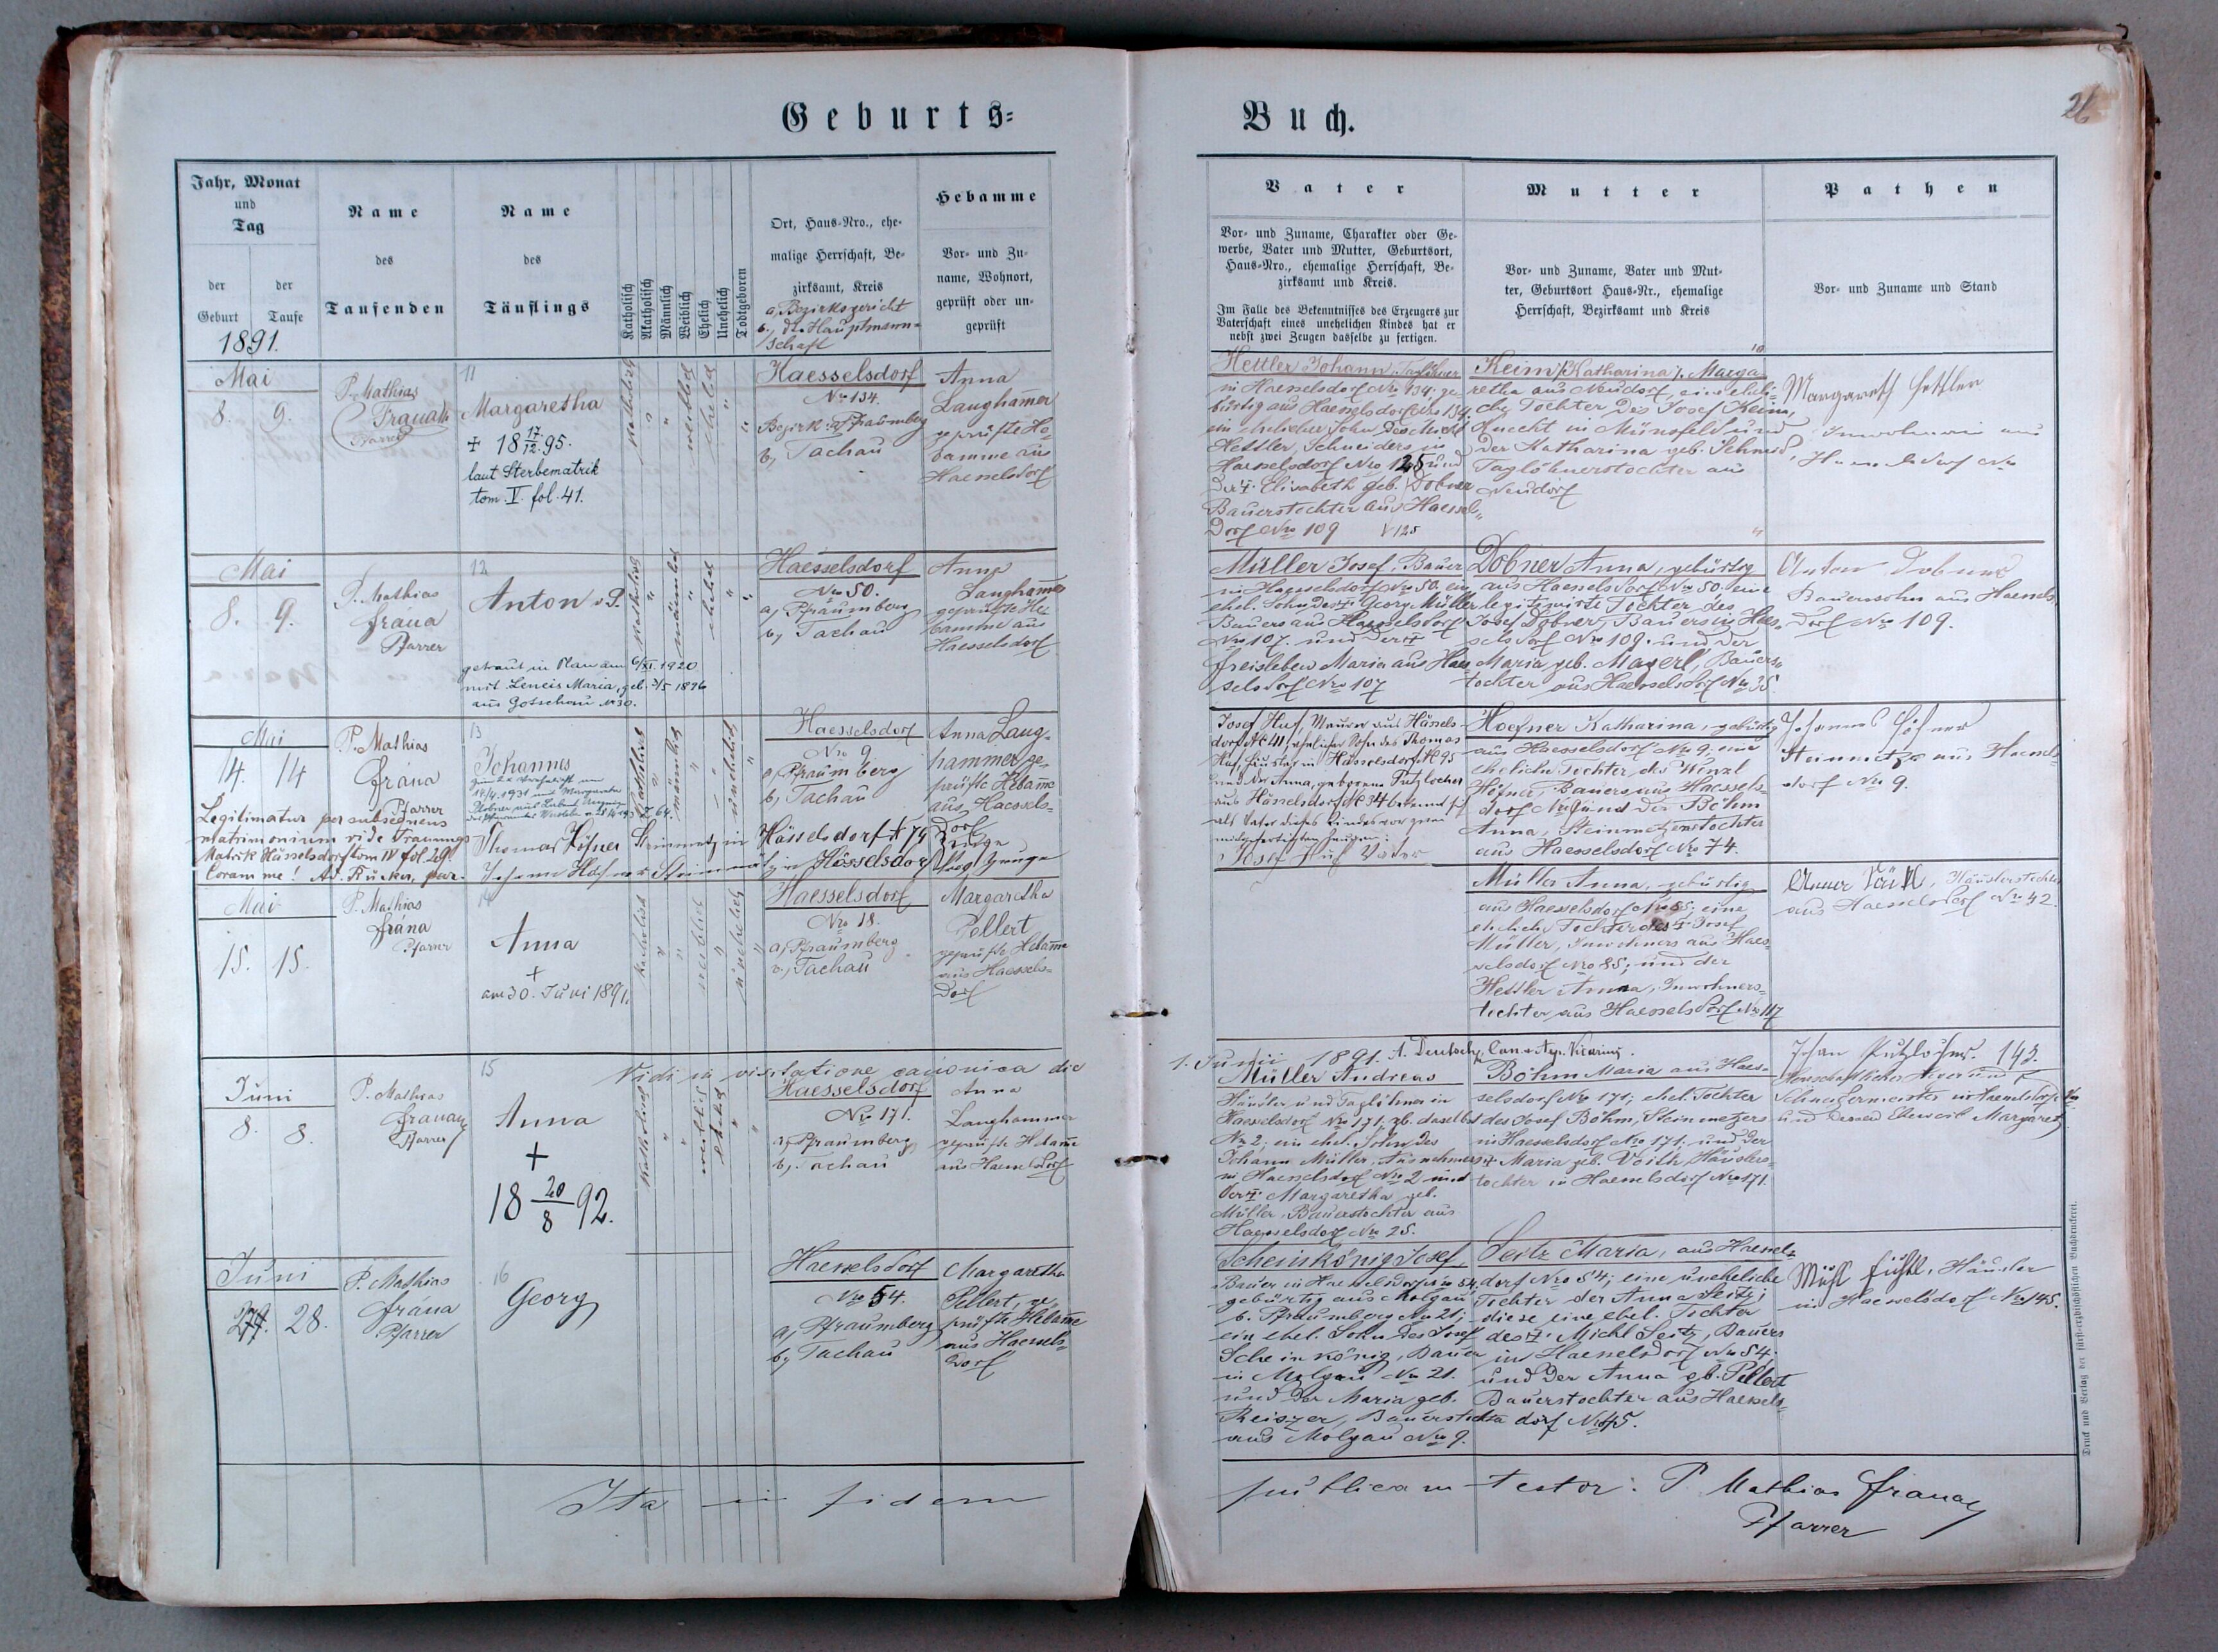 Geburts-
Buch.
26
Jahr, Monat
und
Tag
der
Geburt
der
Taufe
1891.
Name
des
Taufenden
Name
des
Täuflings
Katholisch
Akatholisch
Männlich
Weiblich
Ehelich
Unehelich
Todtgeboren
Ort, Haus-Nro., ehe-
malige Herrschaft, Be-
zirksamt, Kreis
a, Bezirksgericht
b, Hauptmann-
schaft
Hebamme
Vor- und Zu-
name, Wohnort,
geprüft oder un-
geprüft
Vater
Vor- und Zuname, Charakter oder Ge-
werbe, Vater und Mutter, Geburtsort,
Haus-Nro., ehemalige Herrschaft, Be-
zirksamt und Kreis.
Im Falle des Bekenntnisses des Erzeugers zur
Vaterschaft eines unehelichen Kindes hat er
nebst zwei Zeugen dasselbe zu fertigen.
Mutter
Vor- und Zuname, Vater und Mut-
ter, Geburtsort Haus-Nr., ehemalige
Herrschaft, Bezirksamt und Kreis
Pathen
Vor- und Zuname und Stand
Mai
8. 9.
P. Mathias
Frana
Pfarrer
11
Margaretha
+ 18 17/12. 95.
laut Sterbematrik
tom. V. fol. 41.
katholisch
weiblich
ehelich
Haesselsdorf
Nro 134.
Bezirk a, Pfraumberg
b, Tachau
Anna
Langhamer
geprüfte He-
bamme aus
Haesselsdorf
Hettler Johann, Taglöhner
in Haesselsdorf Nro 134, ge-
bürtig aus Haesselsdorf Nro 134.
ein ehelicher Sohn des Michl
Hettler, Schneiders in
Haesselsdorf Nro 125 und
der + Elisabeth geb. Dobner
Bauerstochter aus Haessels-
dorf Nro 109
125
Keim Katharina Marga-
retha aus Neudorf, eine eheli-
che Tochter des Josef Keim,
Knecht in und
der Katharina geb. Schmid,
Taglöhnerstochter aus
Neudorf
Margareth Hettler
Inwohnerin aus
Haesselsdorf Nro
Mai
8. 9.
P. Mathias
Frána
Pfarrer
12
Anton
getraut in Plan am 6/XI. 1920
mit Leneis Maria, geb. 3/5 1896
aus Gotschau No 30.
katholisch
männlich
ehelich
Haesselsdorf
Nro 50.
a, Pfraumberg
b, Tachau
Anna
Langhamer
geprüfte He-
bamme aus
Haesselsdorf
Müller Josef, Bauer
in Haesselsdorf Nro 50. ein
ehel. Sohn des + Georg Müller
Bauers aus Haesselsdorf
Nro 107. und der +
Freisleben Maria aus Haes-
selsdorf Nro 107
Dobner Anna, gebürtig
aus Haesselsdorf Nro 50. eine
legitimirte Tochter des
Josef Dobner, Bauers in Haes-
selsdorf Nro 109. und der
Maria geb. Mayerl, Bauers-
tochter aus Haesselsdorf Nro 35.
Anton Dobner
Bauerssohn aus Haessels-
dorf Nro 109.
Mai
14. 14
P. Mathias
Frána
Pfarrer
13
Johannes
Legitimatur per subsequens
matrimonium vide Trauungs-
Matrik Hässelsdorf tom IV fol. 29.
Coram me! Ad. Rücker, par.
katholisch
männlich
unehelich
Haesselsdorf
Nro 9
a, Pfraumberg
b, Tachau
Anna Lang-
hammer ge-
prüfte Hebame
aus Haessels-
dorf
Thomas Höfner Steinmetz in Hässelsdorf No 79 Zeuge
Johann Höfner Steinmetz in Hässelsdorf Zeuge
Josef Huf, Maurer aus Hässels-
dorf No 41, ehelicher Sohn des Thomas
Huf, Häusler in Hässelsdorf No 95
und der Anna, geborene Putzlocher
aus Hässelsdorf No 34 bekennt sich
als Vater dieses Kindes vor zwei
mitgefertigten Zeugen:
Josef Huf Vater
Hoefner Katharina, gebürtig
aus Haesselsdorf Nro 9; eine
eheliche Tochter des Wenzl
Höfner, Bauers aus Haessels-
dorf Nro 9 und der Böhm
Anna, Steinmetzenstochter
aus Haesselsdorf Nro 74.
Johannes Höfner
Steinmetz aus Haessels-
dorf Nro 9.
Mai
15. 15.
P. Mathias
Frána
Pfarrer
14
Anna
+
am 30. Juni 1891.
katholisch
weiblich
unehelich
Haesselsdorf
Nro 18.
a, Pfraumberg
b, Tachau
Margaretha
Pellert
geprüfte Hebame
aus Haessels-
dorf
Müller Anna, gebürtig
aus Haesselsdorf Nro 85; eine
eheliche Tochter des + Josef
Müller, Inwohners aus Haes-
selsdorf Nro 85; und der
Hettler Anna, Inwohners-
tochter aus Haesselsdorf Nro 117
Anna, Häuslerstochter
aus Haesselsdorf Nro 42.
Vidi in visitatione canonica die
1. Junii 1891. A. Deutsch, Can. Vicarius.
Juni
8. 8.
P. Mathias
Frana
Pfarrer
15
Anna
+
18 20/8 92.
katholisch
weiblich
ehelich
Haesselsdorf
Nro 171.
a, Pfraumberg
b, Tachau
Anna
Langhammer
geprüfte Hebame
aus Haesselsdorf
Müller Andreas
Häusler und Taglöhner in
Haesselsdorf Nro 171; gb. daselbst
Nro 2; ein ehel. Sohn des
Johann Müller, Ausnehmers
in Haesselsdorf Nro 2 und
der + Margaretha geb.
Müller, Bauerstochter aus
Haesselsdorf Nro 25.
Böhm Maria aus Haes-
selsdorf Nro 171; ehel. Tochter
des Josef Böhm, Steinmetzers
in Haesselsdorf Nro 171. und der
+ Maria geb. Voith, Häuslers-
tochter in Haesselsdorf Nro 171
Johan Putzlocher. 143.
Herrschaftlicher Heger und
in Haesselsdorf
und dessen Eheweib Margareth
Juni
27. 28.
P. Mathias
Frána
Pfarrer
16
Georg
Haesselsdorf
Nro 54.
a, Pfraumberg
b, Tachau
Margaretha
Pellert, ge-
prüfte Hebame
aus Haessels-
dorf
Scheinkönig Josef,
Bauer in Haesselsdorf Nro 54,
gebürtig aus Molgau
b. Pfraumberg Nro 21;
ein ehel. Sohn des Josef
Scheinkönig, Bauer
in Molgau Nro 21.
und der Maria geb.
Reiszer, Bauerstochter
aus Molgau Nro 9.
Seitz Maria, aus Haessels-
dorf Nro 54; eine uneheliche
Tochter der Anna Seitz;
diese eine ehel. Tochter
des + Michl Seitz, Bauers
in Haesselsdorf Nro 54.
und der Anna gb. Pellert
Bauerstochter aus Haessels-
dorf Nro 45.
Häusler
in Haesselsdorf Nro 145.
Ita in fidem
publicam testor: P. Mathias Frana
Pfarrer
Druck und Verlag der fürst-erzbischöflichen Buchdruckerei.